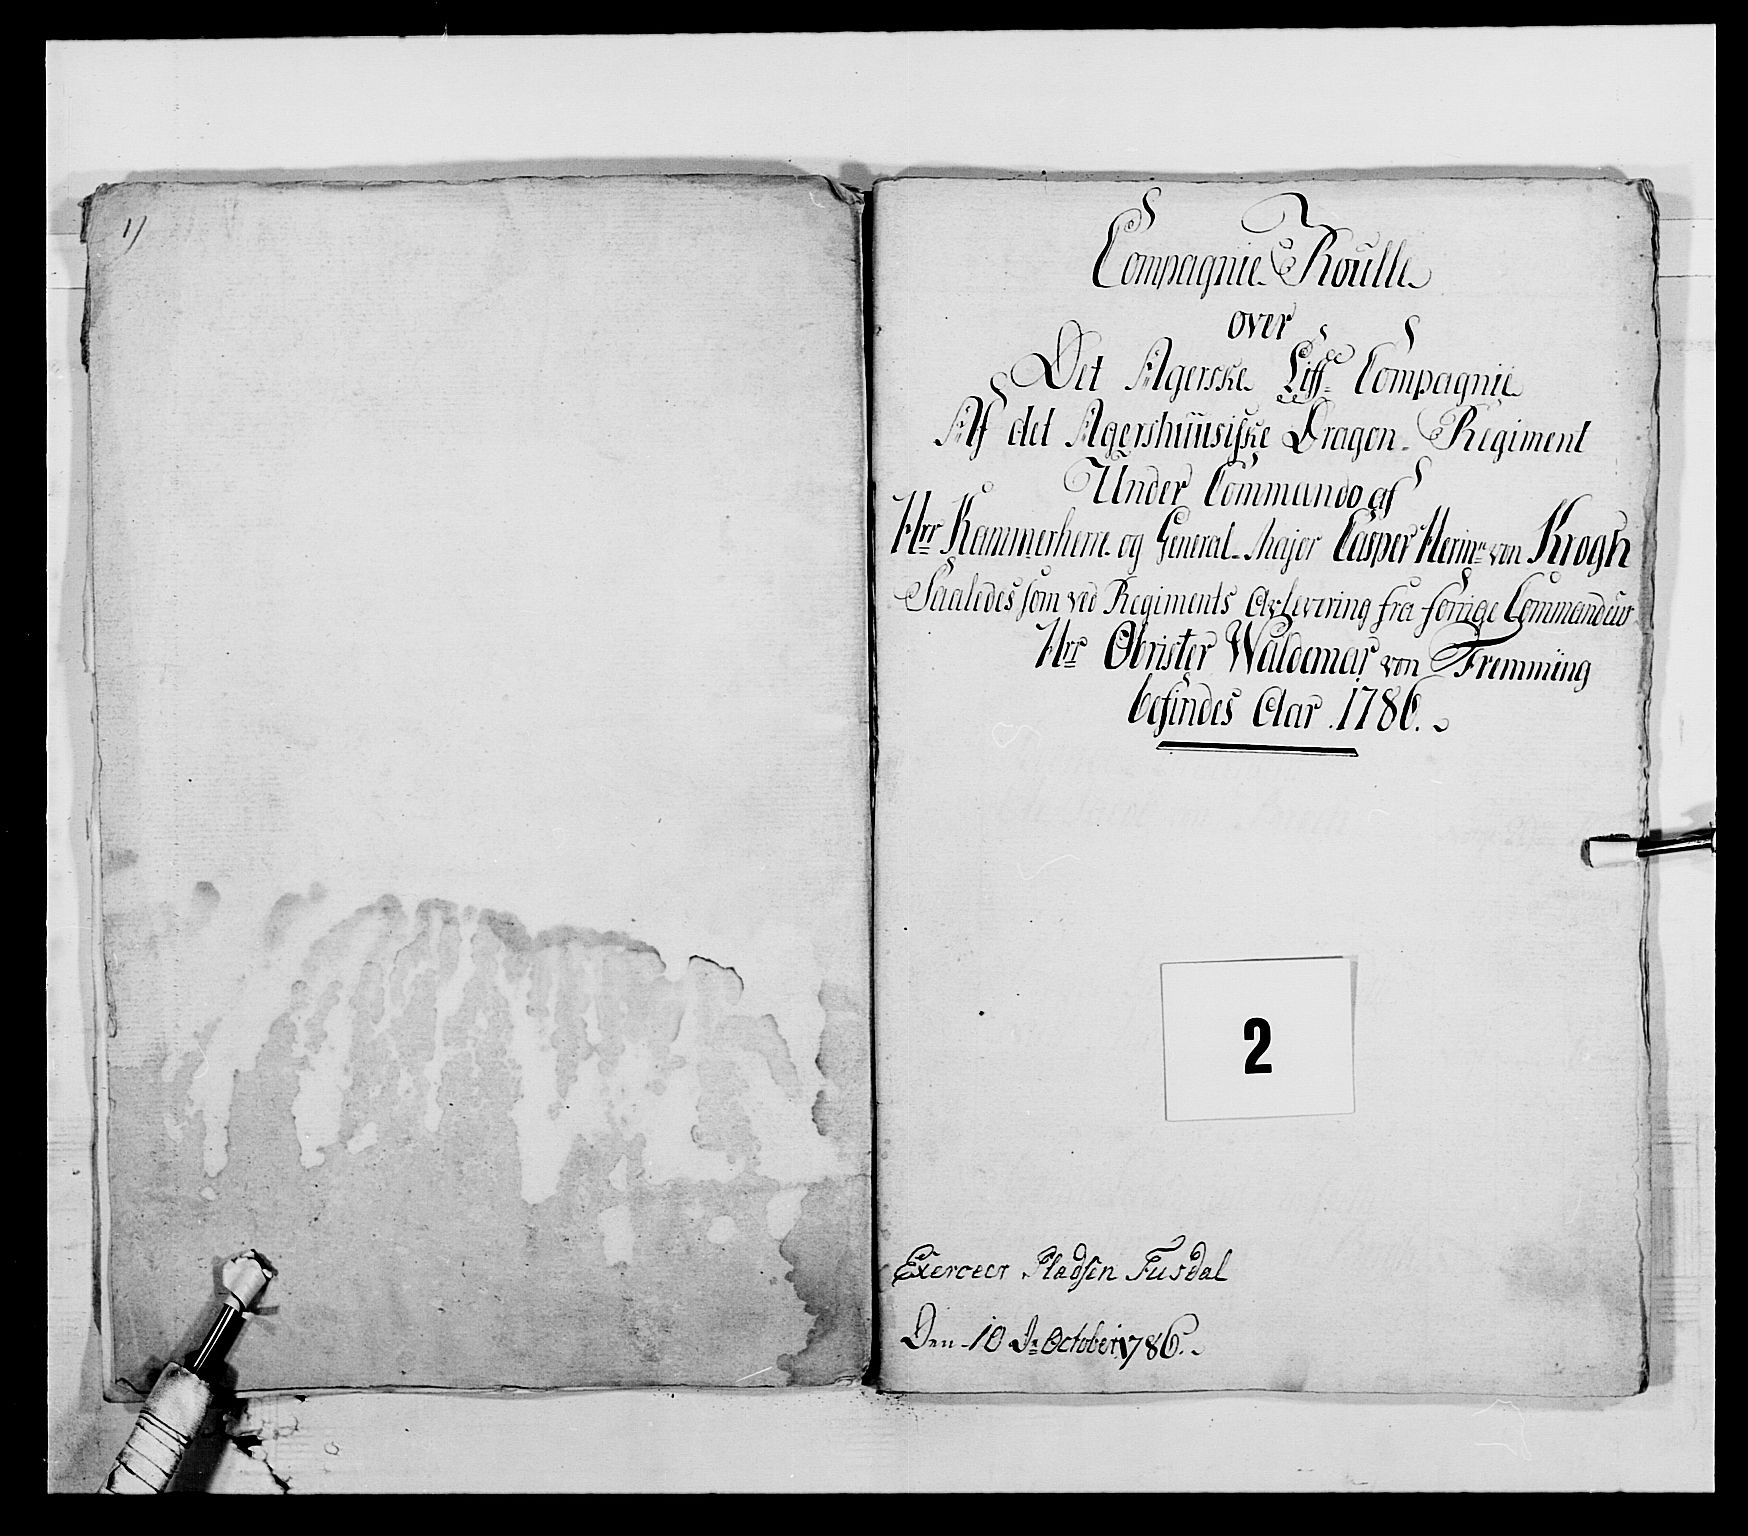 1)
Compagnie Roulle
over
Det Agerske Liff Compagnie
Af det Agershuusiske Dragon Regiment
Under Commando af
Hrr Kammerherre og General Major Casper Herm: von Krogh
Saaledes som ved Regiments Aflevering fra forrige Commandeur
Hrr Obrister Waldemar von Fremming
befindes Aar 1786.
2
Exerceer Pladsen Fusdal
Den 10 de October 1786.